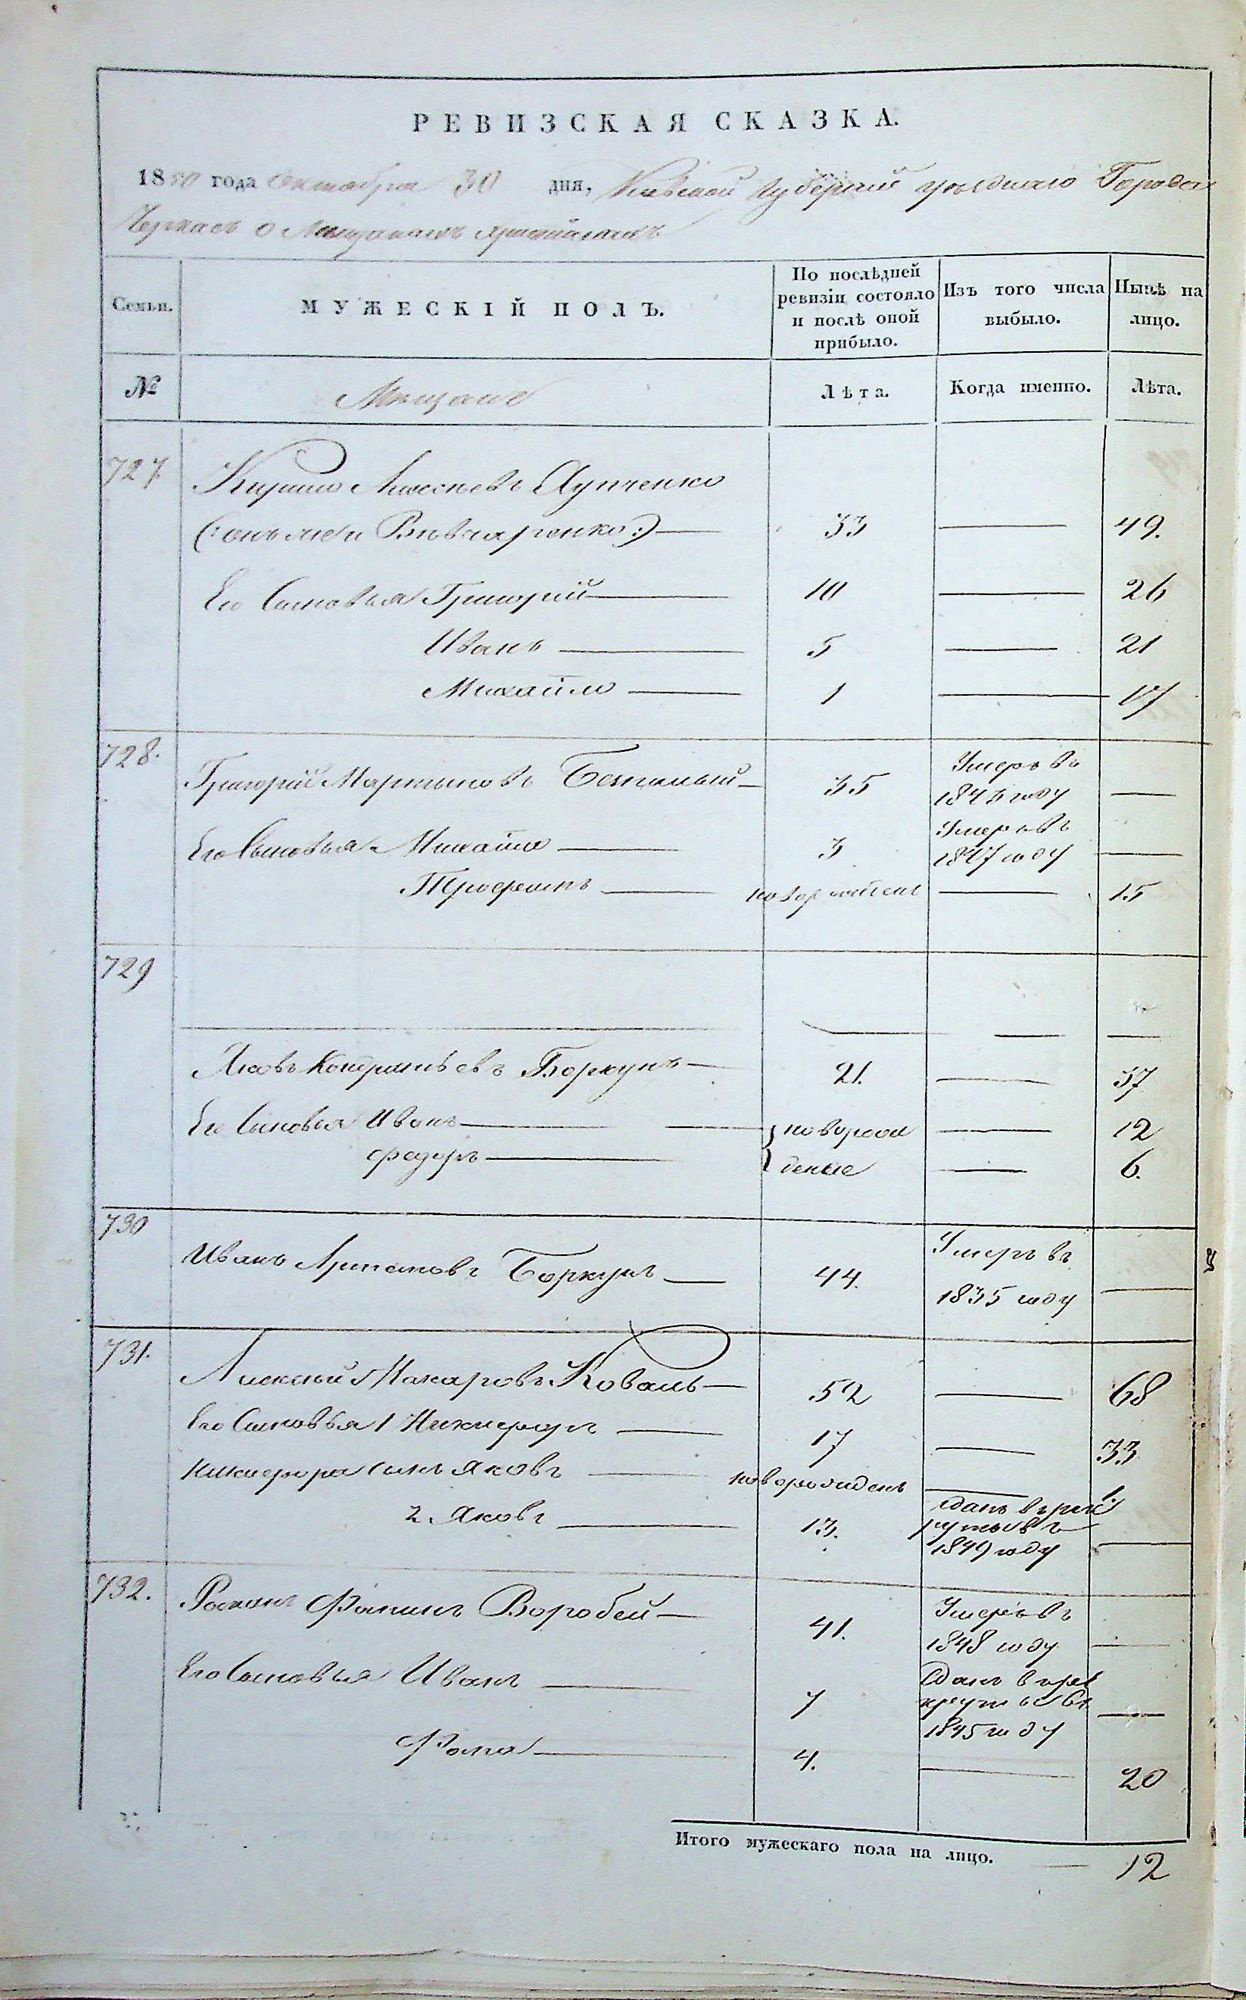 РЕВИЗСКАЯ СКАЗКА.
1850 года Октября 30 дня, Киевской Губернии уезднаго Города
Черкасъ о Мещанахъ христианахъ
Семьи. МУЖЕСКІЙ ПОЛЪ. По послѣдней ревизіи состояло и послѣ оной прибыло. Изъ того числа выбыло. Нынѣ на лицо.
№ Мещане Лѣта. Когда именно. Лѣта.
727. Кирило Алексѣевъ
(: онъ же и Вивчаренко :) 33 — 49.
Его Сыновья Григорій 10 — 26
Иванъ 5 — 21
Михайло 1 — 17
728. Григорій Мартыновъ 35 Умеръ въ 184 году —
Его Сыновья Михайло 3 Умеръ въ 1847 году —
Трофимъ новорожденъ — 15
729
— — —
Яковъ Кондратьевъ Боркунъ 21. — 37
Его Сыновья Иванъ новорож — 12
Федоръ деные — 6.
730 Иванъ Боркунъ 44. Умеръ въ 1835 году —
731. Алексѣй Макаровъ Коваль 52 — 68
Его Сыновья 1 Никифоръ 17 — 33
Никифора сынъ Яковъ новорожденъ — 1.
2. Яковъ 13. сданъ в рекруты въ 1849 году —
732. Романъ Фоминъ Воробей 41. Умеръ въ 1848 году —
Его Сыновья Иванъ 7 Сданъ в рекруты въ 1845 году —
Фома 4. — 20
Итого мужескаго пола на лицо. — 12